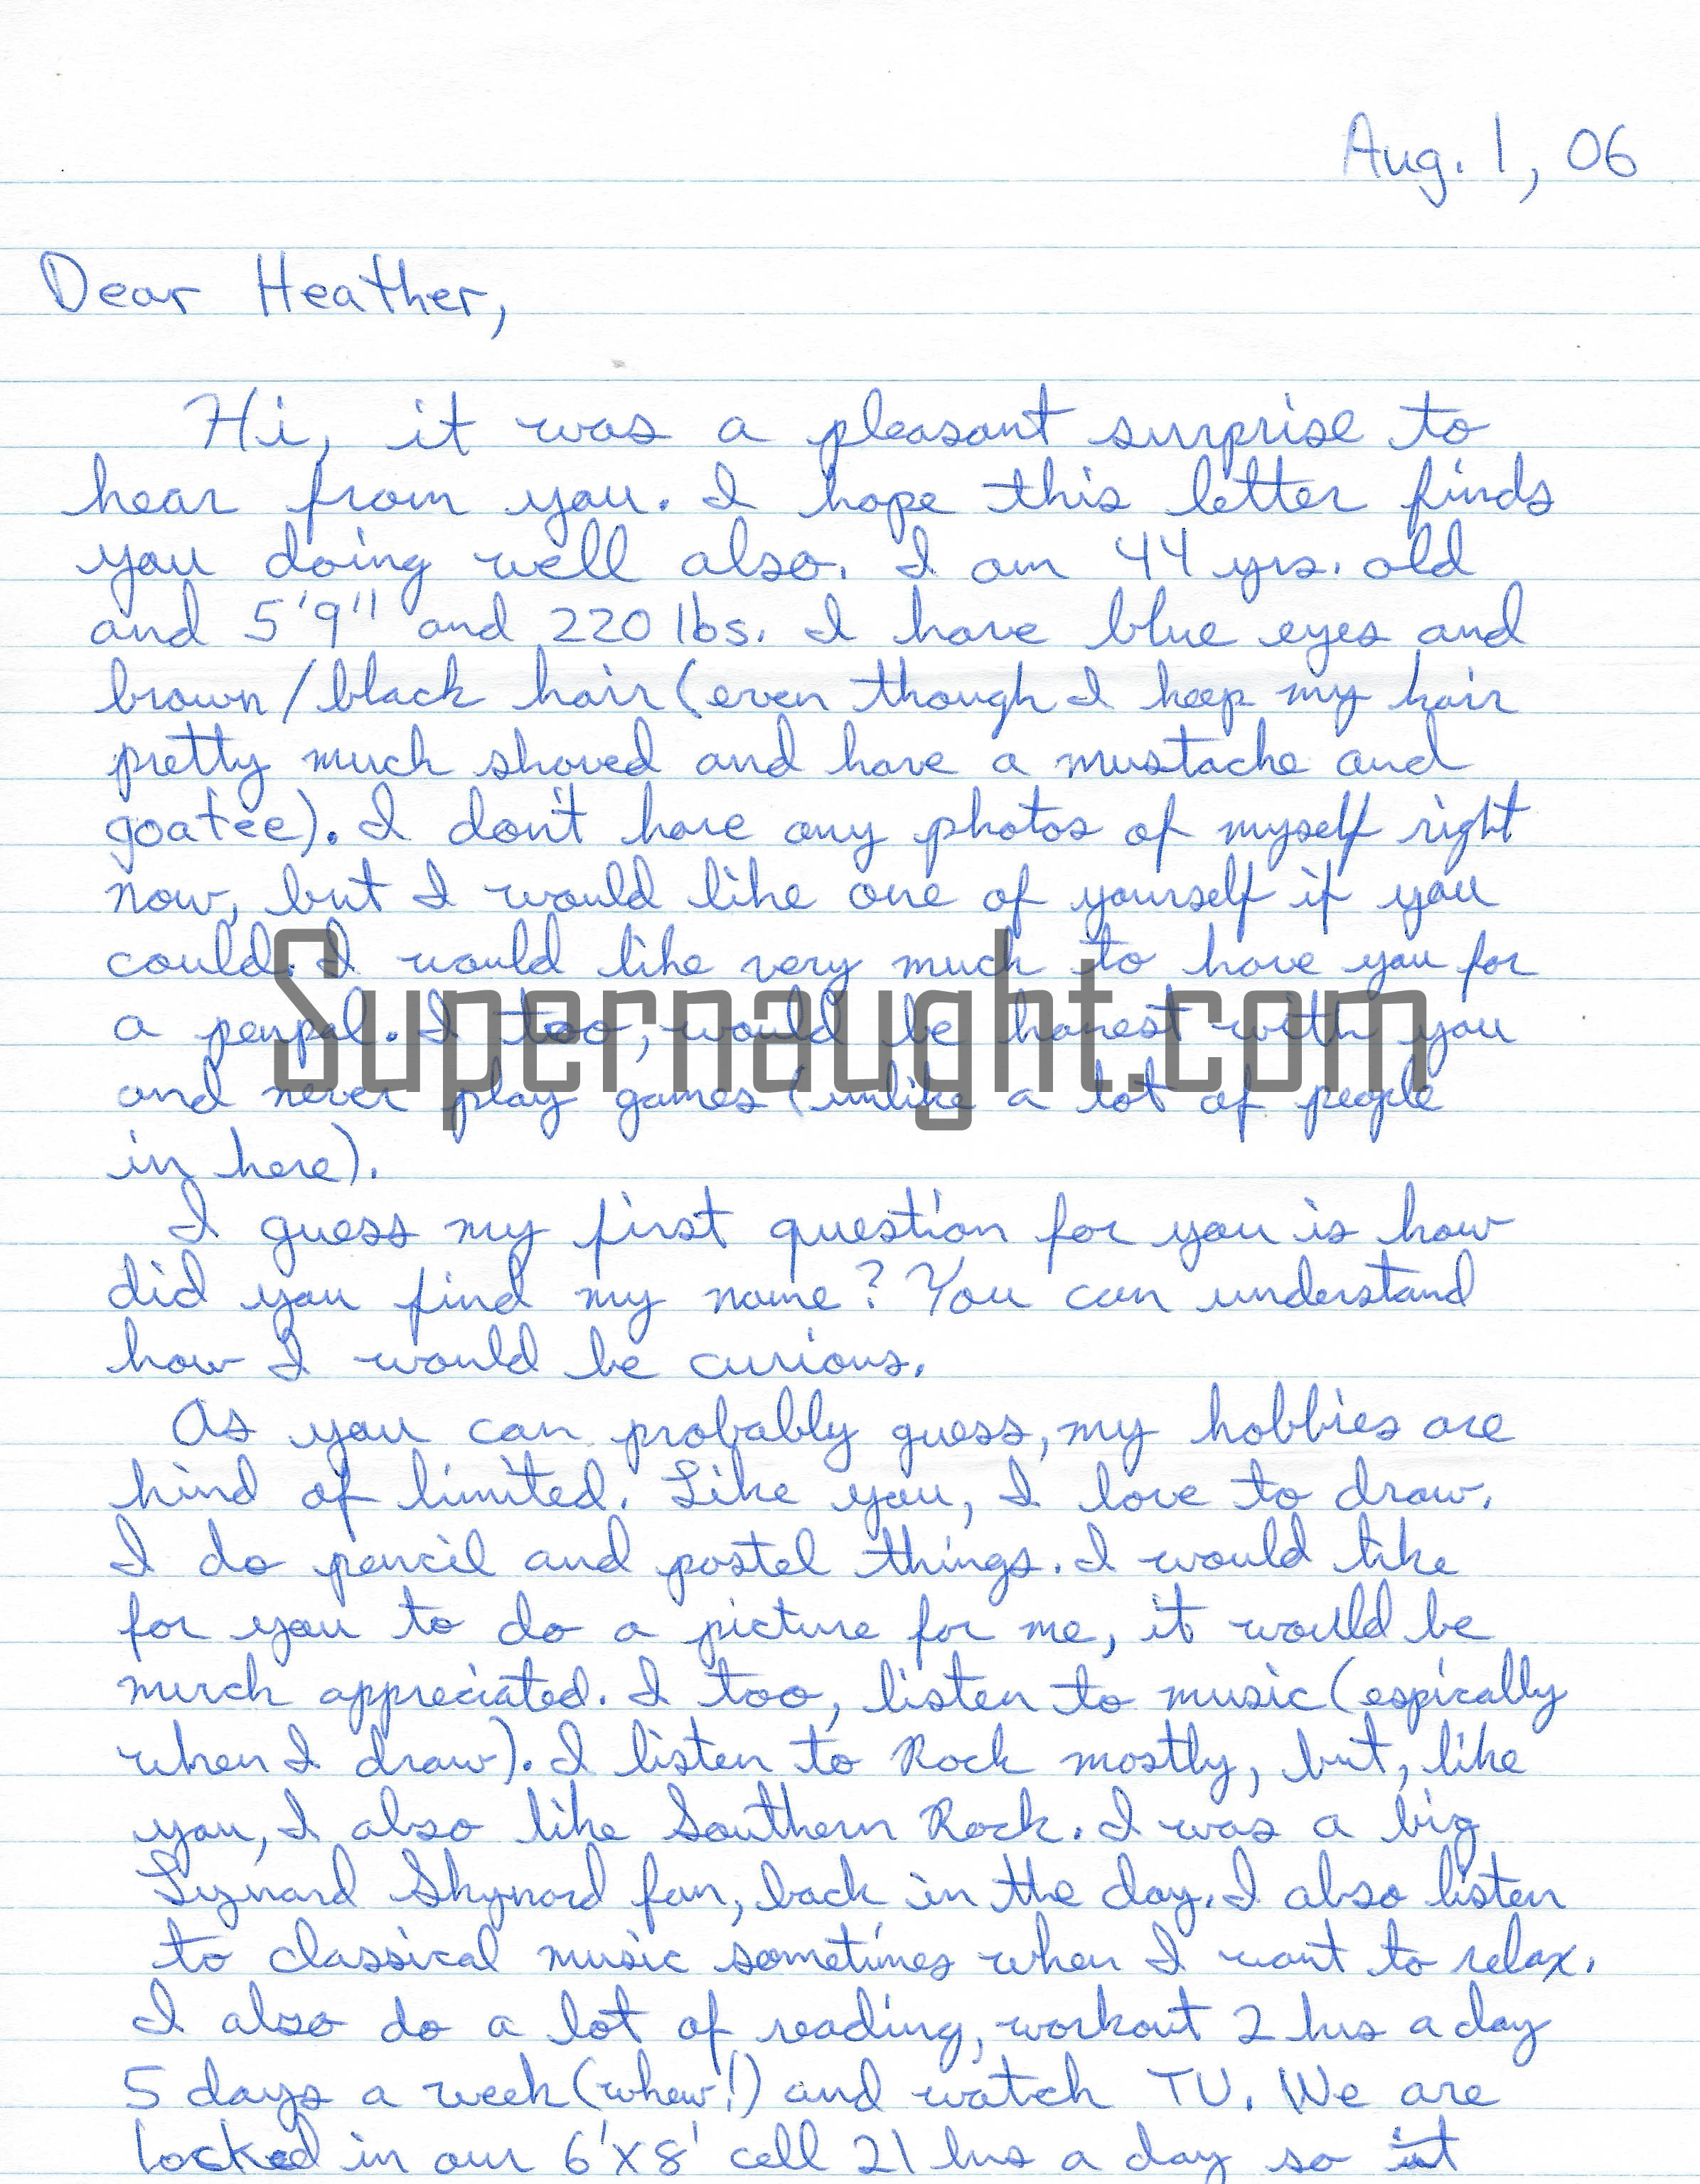 Aug. 1, 06
Dear Heather,
Hi, it was a pleasant surprise to
hear from you. I hope this letter finds
you doing well also. I am 44 yrs. old
and 5'9" and 220 lbs. I have blue eyes and
brown/black hair (even though I keep my hair
pretty much shaved and have a mustache and
goatee). I don't have any photos of myself right
now, but I would like one of yourself if you
could. I would like very much to have you for
a penpal. I too, would be honest with you
and never play games (unlike a lot of people
in here).
Supernaught.com
I guess my first question for you is how
did you find my name? You can understand
how I would be curious.
As you can probably guess, my hobbies are
kind of limited. Like you, I love to draw.
I do pencil and pastel things. I would like
for you to do a picture for me, it would be
much appreciated. I too, listen to music (espically
when I draw). I listen to Rock mostly, but, like
you, I also like Southern Rock. I was a big
Lynard Skynard fan, back in the day. I also listen
to classical music sometimes when I want to relax.
I also do a lot of reading, workout 2 hrs a day
5 days a week (whew!) and watch TV. We are
locked in our 6'x8' cell 21 hrs a day so it